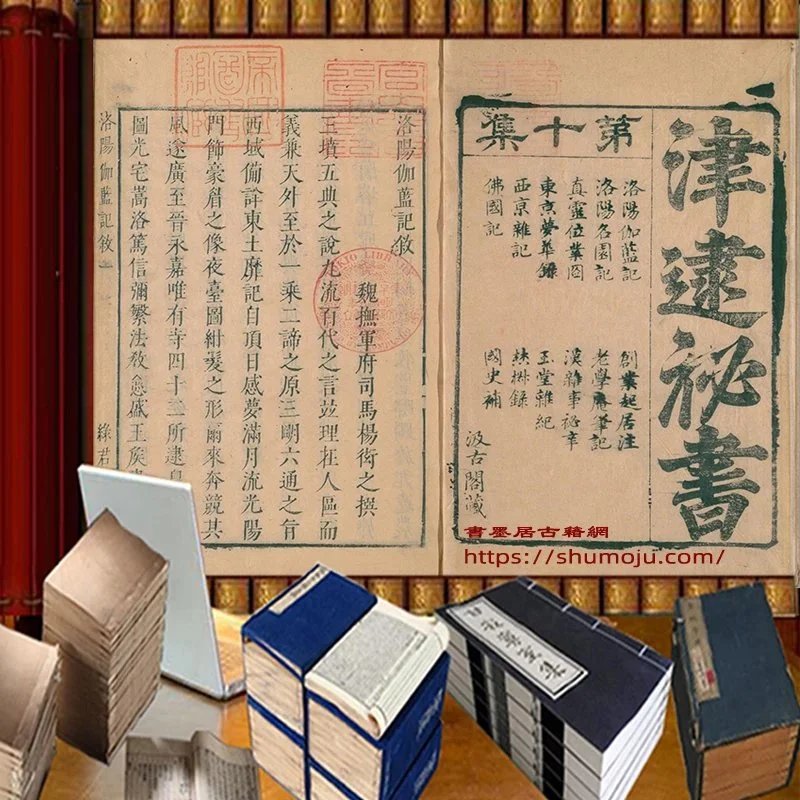 津逮祕書
第十集
洛陽伽藍記 創業起居注
洛陽名園記 老學庵筆記
真靈位業圖 漢雜事秘辛
東京夢華錄 玉堂雜紀
西京雜記
佛國記 國史補
汲古閣藏
洛陽伽藍記敘
魏撫軍府司馬楊衒之撰
三墳五典之說九流百代之言竝理在人區而
義兼天外至於一乘二諦之原三明六通之旨
西域備詳東土靡記自頂日感夢滿月流光陽
門飾豪眉之像夜臺圖紺髮之形爾來奔競其
風遂廣至晉永嘉唯有寺四十二所逮皇
圖光宅嵩洛篤信彌繁法教愈盛王侯
洛陽伽藍記敘 一 綠君
書墨居古籍網
https://shumoju.com/